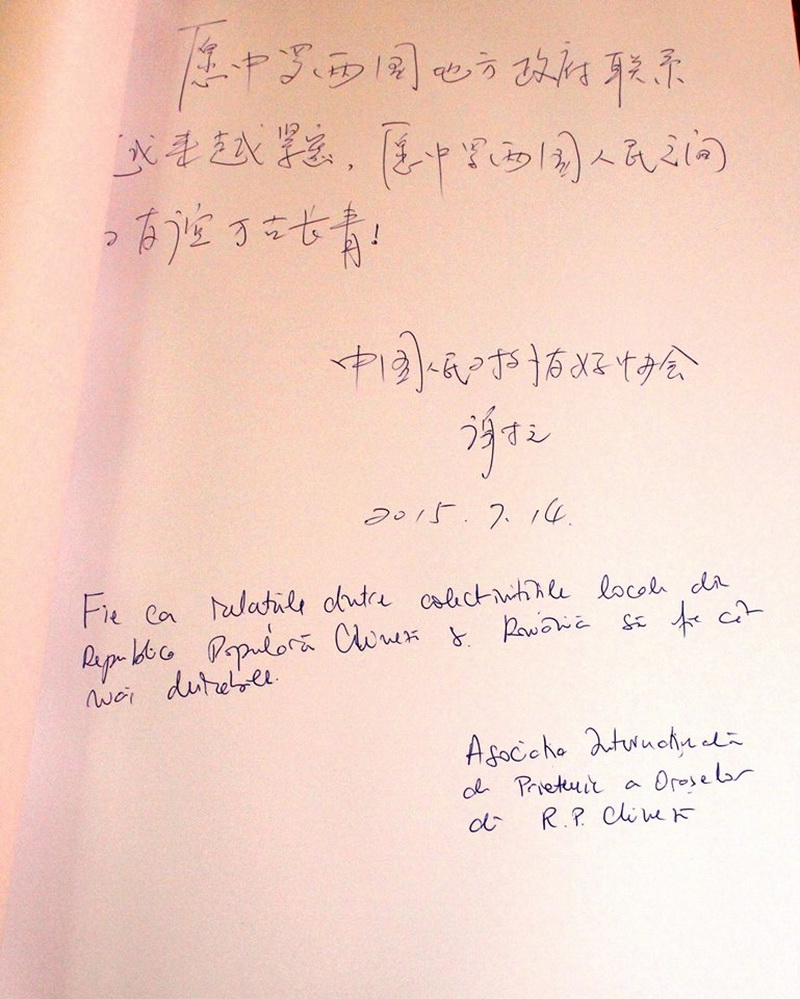 愿中罗两国地方政府联系
越来越紧密，愿中罗两国人民之间
友谊万古长青！
中国人民对外友好协会
谢
2015.7.14.
Fie ca relațiile dintre colectivitățile locale din
Republica Populară Chineză și România să fie cât
mai durabile.
Asociația Internațională
de Prietenie a Orașelor
din R.P. Chineză